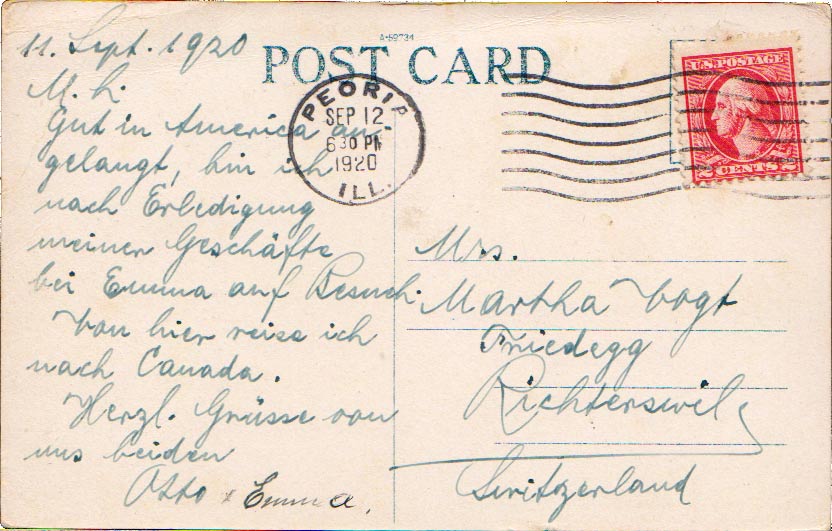 11. Sept. 1920
M. L.
Gut in America an-
gelangt, bin ich
nach Erledigung
meiner Geschäfte
bei Emma auf Besuch.
Von hier reise ich
nach Canada.
Herzl. Grüsse von
uns beiden
Otto & Emma.
A-69734
POST CARD
PEORIA,
SEP 12
6 30 PM
1920
ILL.
U.S. POSTAGE
2 CENTS 2
Mrs.
Martha Vogt
Friedegg
Richterswil
Switzerland